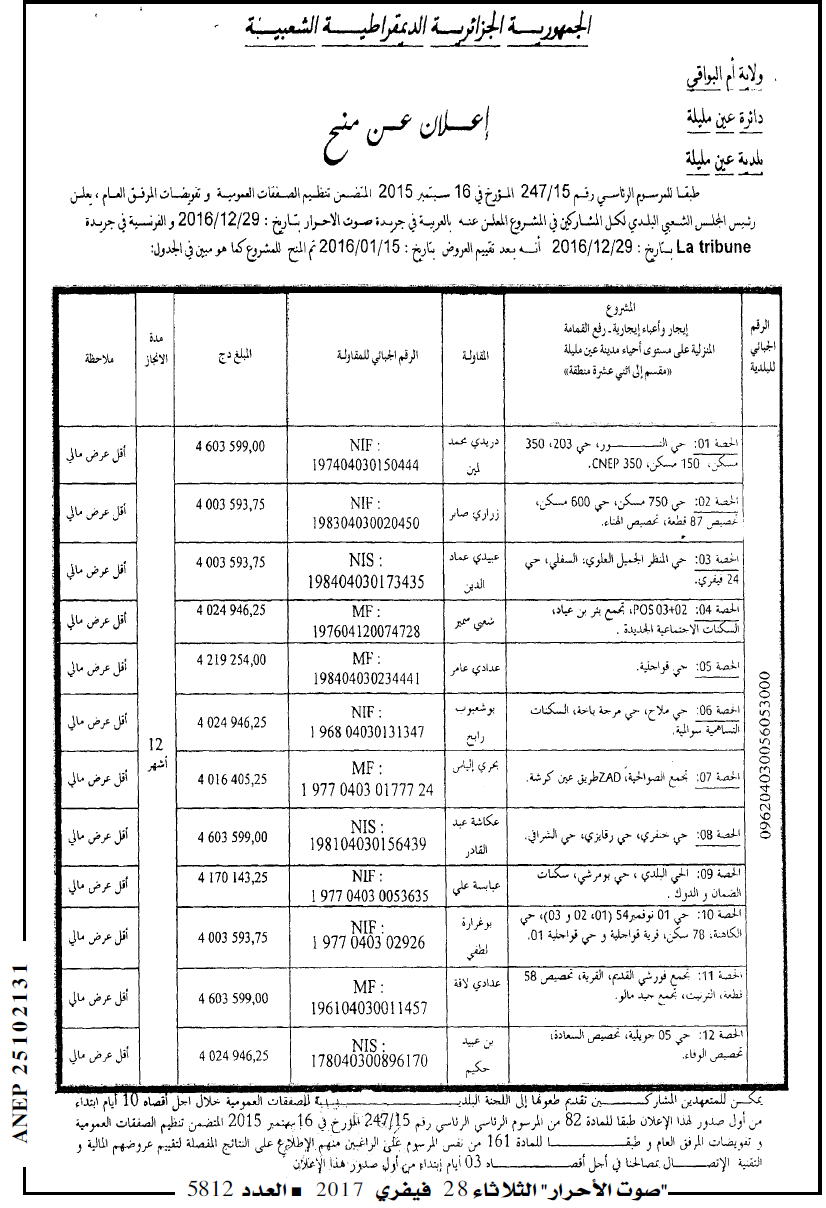 الجمهوريـة الجزائريـة الديمقراطيـة الشعبيـة
ولاية أم البواقي
دائرة عين مليلة
بلدية عين مليلة
إعـلان عـن منـح
طبقـا للمرسوم الرئاسـي رقـم 247/15 المـؤرخ في 16 سبتمبر 2015 المتضمـن تنظيـم الصفقـات العموميـة و تفويضات المرفق العام ، يعلـن
رئيـس المجلـس الشعبـي البلـدي لكـل المشاركيـن في المشروع المعلن عنـه بالعربيـة في جريدة صوت الاحرار بتاريخ : 2016/12/29 و الفرنسية في جريدة
La tribune بتاريخ : 2016/12/29 أنـه بعد تقييم العروض بتاريخ : 2016/01/15 تم المنح للمشروع كما هو مبين في الجدول:
الرقم الجبائي للبلدية
المشروع
إيجار وأعباء إيجارية ـ رفع القمامة
المنزلية على مستوى أحياء مدينة عين مليلة
«مقسم إلى اثني عشرة منطقة»
المقاولة
الرقم الجبائي للمقاولة
المبلغ دج
مدة الانجاز
ملاحظة
096204030056053000
12 أشهر
الحصة 01: حي النـــــور، حي 203، 350
مسكن، 150 مسكن، 350 CNEP.
دريدي محمد لمين
NIF :
197404030150444
4 603 599,00
أقل عرض مالي
الحصة 02: حي 750 مسكن، حي 600 مسكن،
تخصيص 87 قطعة، تخصيص الهناء.
زراري صابر
NIF :
198304030020450
4 003 593,75
أقل عرض مالي
الحصة 03: حي المنظر الجميل العلوي: السفلي، حي
24 فيفري.
عبيدي عماد الدين
NIS :
198404030173435
4 003 593,75
أقل عرض مالي
الحصة 04: POS 03+02، تجمع بئر بن عياد،
السكنات الاجتماعية الجديدة .
شعبي سمير
MF :
197604120074728
4 024 946,25
أقل عرض مالي
الحصة 05: حي قواجلية.
عدادي عامر
MF :
198404030234441
4 219 254,00
أقل عرض مالي
الحصة 06: حي ملاح، حي مرحة باحة، السكنات
التساهمية سوالمية.
بوشعبوب رابح
NIF :
1 968 04030131347
4 024 946,25
أقل عرض مالي
الحصة 07: تجمع الصوالحية، ZAD طريق عين كرشة.
بحري إلياس
MF :
1 977 0403 01777 24
4 016 405,25
أقل عرض مالي
الحصة 08: حي خنفري، حي رقايزي، حي الشرافي.
عكاشة عبد القادر
NIS :
198104030156439
4 603 599,00
أقل عرض مالي
الحصة 09: الحي البلدي ، حي بومرشي، سكنات
الضمان و الدرك .
عبابسة علي
NIF :
1 977 0403 0053635
4 170 143,25
أقل عرض مالي
الحصة 10: حي 01 نوفمبر54 (01، 02 و 03)، حي
الكاهنة، 78 سكن، قرية قواجلية و حي قواجلية 01.
بوغرارة لطفي
NIF :
1 977 0403 02926
4 003 593,75
أقل عرض مالي
الحصة 11: تجمع فورشي القديم، القرية، تخصيص 58
قطعة، الترنيت، تجمع حيد مالو.
عدادي لاقة
MF :
196104030011457
4 603 599,00
أقل عرض مالي
الحصة 12: حي 05 جويلية، تخصيص السعادة،
تخصيص الوفاء.
بن عبيد حكيم
NIS :
178040300896170
4 024 946,25
أقل عرض مالي
يمكـن للمتعهدين المشاركـــين تقديم طعونها إلى اللجنة البلديـــة للصفقات العمومية خلال اجل أقصاه 10 أيام ابتداء
من أول صدور لهذا الإعلان طبقا للمادة 82 من المرسوم الرئاسي الرئاسي رقم 247/15 المؤرخ في 16 سبتمبر 2015 المتضمن تنظيم الصفقات العمومية
و تفويضات المرفق العام و طبقــا للمادة 161 من نفس المرسوم على الراغبين منهم الإطلاع على النتائج المفصلة لتقييم عروضهم المالية و
التقنية الإتصــال بمصالحنا في أجل أقصــاه 03 أيام إبتداء من أول صدور هذا الإعلان
ANEP 25102131
"صوت الأحرار" الثلاثاء 28 فيفري 2017 ■ العدد 5812